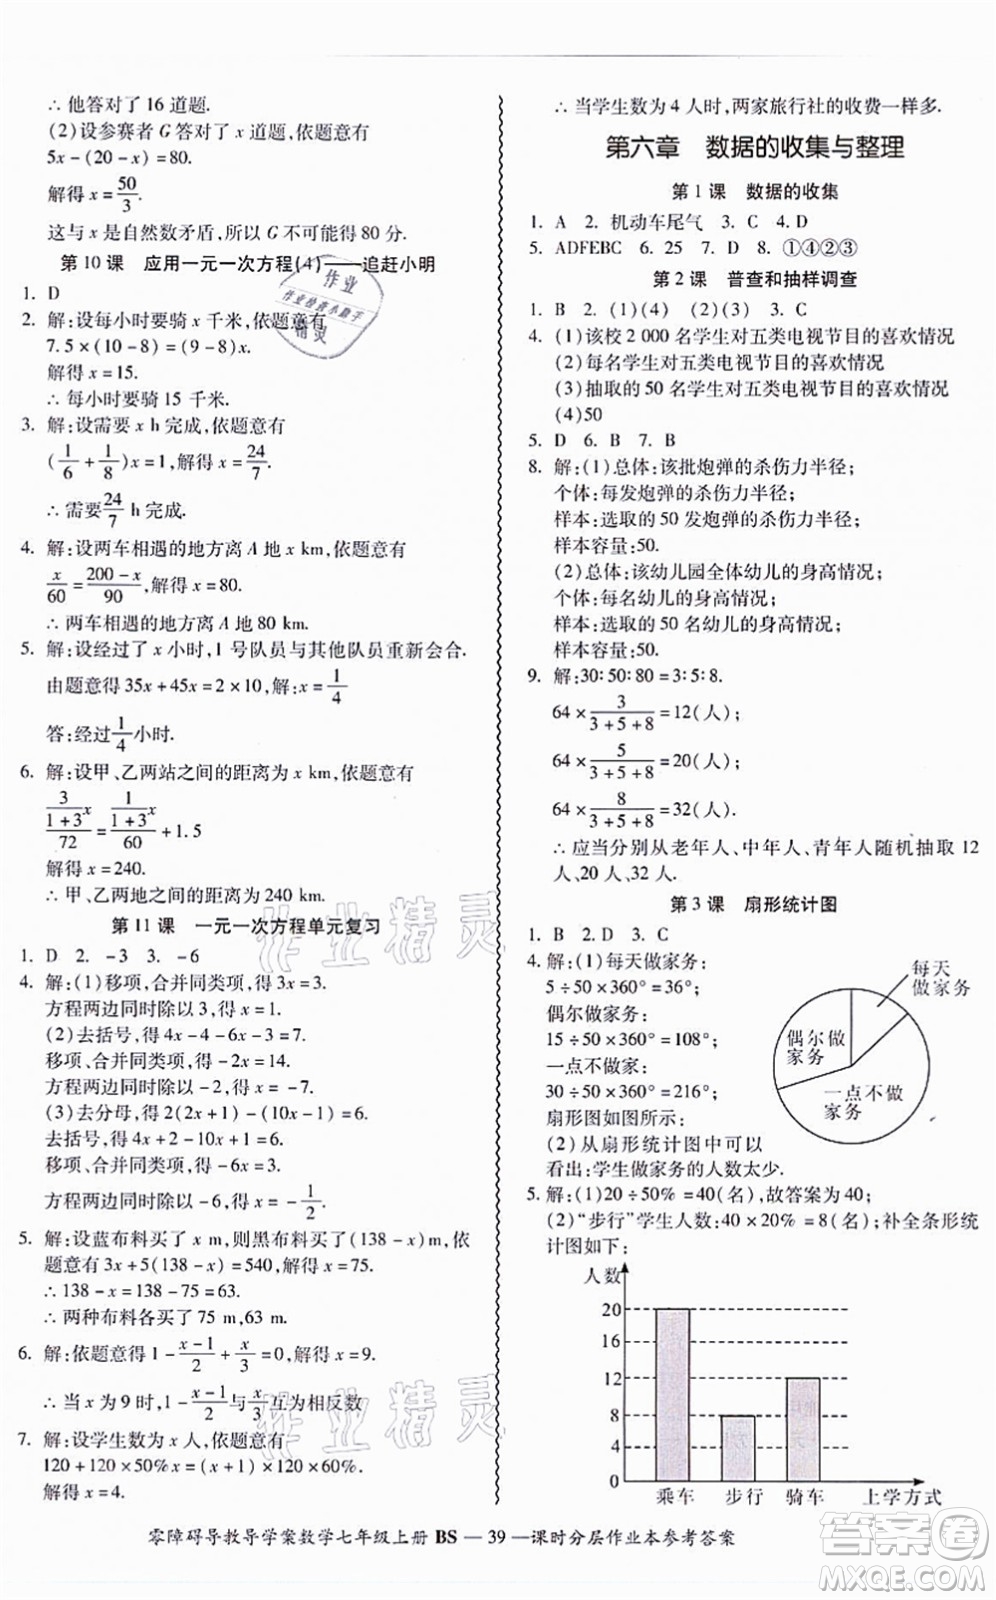 ∴他答对了 16 道题.
(2)设参赛者 G 答对了 x 道题,依题意有
5x-(20-x)=80.
解得 x=50/3.
这与 x 是自然数矛盾,所以 G 不可能得 80 分.
第 10 课 应用一元一次方程(4)——追赶小明
1. D
2. 解:设每小时要骑 x 千米,依题意有
7.5×(10-8)=(9-8)x.
解得 x=15.
∴每小时要骑 15 千米.
3. 解:设需要 x h 完成,依题意有
(1/6+1/8)x=1,解得 x=24/7.
∴需要24/7 h 完成.
4. 解:设两车相遇的地方离 A 地 x km,依题意有
x/60=(200-x)/90,解得 x=80.
∴两车相遇的地方离 A 地 80 km.
5. 解:设经过 x 小时,1 号队员与其他队员重新会合.
由题意得 35x+45x=2×10,解:x=1/4
答:经过1/4小时.
6. 解:设甲、乙两站之间的距离为 x km,依题意有
(3/(1+3)x)/72=(1/(1+3)x)/60+1.5
解得 x=240.
∴甲、乙两地之间的距离为 240 km.
第 11 课 一元一次方程单元复习
1. D 2. -3 3. -6
4. 解:(1)移项,合并同类项,得 3x=3.
方程两边同时除以 3,得 x=1.
(2)去括号,得 4x-4-6x-3=7.
移项、合并同类项,得-2x=14.
方程两边同时除以-2,得 x=-7.
(3)去分母,得 2(2x-1)-(10x+1)=6.
去括号,得 4x-2-10x-1=6.
移项、合并同类项,得-6x=3.
方程两边同时除以-6,得 x=-1/2.
5. 解:设蓝布料买了 x m,则黑布料买了(138-x)m,依
题意有 3x+5(138-x)=540,解得 x=75.
∴138-x=138-75=63.
∴两种布料各买了 75 m,63 m.
6. 解:依题意得 1-(x-1)/2+x/3=0,解得 x=9.
∴当 x 为 9 时,1-(x-1)/2与x/3互为相反数
7. 解:设学生数为 x 人,依题意有
120+120×50%x=(x+1)×120×60%.
解得 x=4.
∴当学生数为 4 人时,两家旅行社的收费一样多.
第六章 数据的收集与整理
第 1 课 数据的收集
1. A 2. 机动车尾气 3. C 4. D
5. ADFEBC 6. 25 7. D 8. ①④②③
第 2 课 普查和抽样调查
1. B 2. (1)(4) (2)(3) 3. C
4. (1)该校 2 000 名学生对五类电视节目的喜欢情况
(2)每名学生对五类电视节目的喜欢情况
(3)抽取的 50 名学生对五类电视节目的喜欢情况
(4)50
5. D 6. B 7. B
8. 解:(1)总体:该批炮弹的杀伤力半径;
个体:每发炮弹的杀伤力半径;
样本:选取的 50 发炮弹的杀伤力半径;
样本容量:50.
(2)总体:该幼儿园全体幼儿的身高情况;
个体:每名幼儿的身高情况;
样本:选取的 50 名幼儿的身高情况;
样本容量:50.
9. 解:30∶50∶80=3∶5∶8.
64×3/(3+5+8)=12(人);
64×5/(3+5+8)=20(人);
64×8/(3+5+8)=32(人).
∴应当分别从老年人、中年人、青年人随机抽取 12
人、20 人、32 人.
第 3 课 扇形统计图
1. B 2. D 3. C
4. 解:(1)每天做家务:
5÷50×360°=36°;
偶尔做家务:
15÷50×360°=108°;
一点不做家务:
30÷50×360°=216°;
扇形图如图所示:
(2)从扇形统计图中可以
看出:学生做家务的人数太少.
每天
做家务
偶尔做
家务
一点不做
家务
5. 解:(1)20÷50%=40(名),故答案为 40;
(2)“步行”学生人数:40×20%=8(名);补全条形统
计图如下:
人数
20
16
12
8
4
0
乘车 步行 骑车 上学方式
零障碍导教导学案数学七年级上册 BS — 39 —课时分层作业本参考答案
作业
作业检查小助手
精灵
作业精灵
作业精灵
答案圈
MXQE.COM